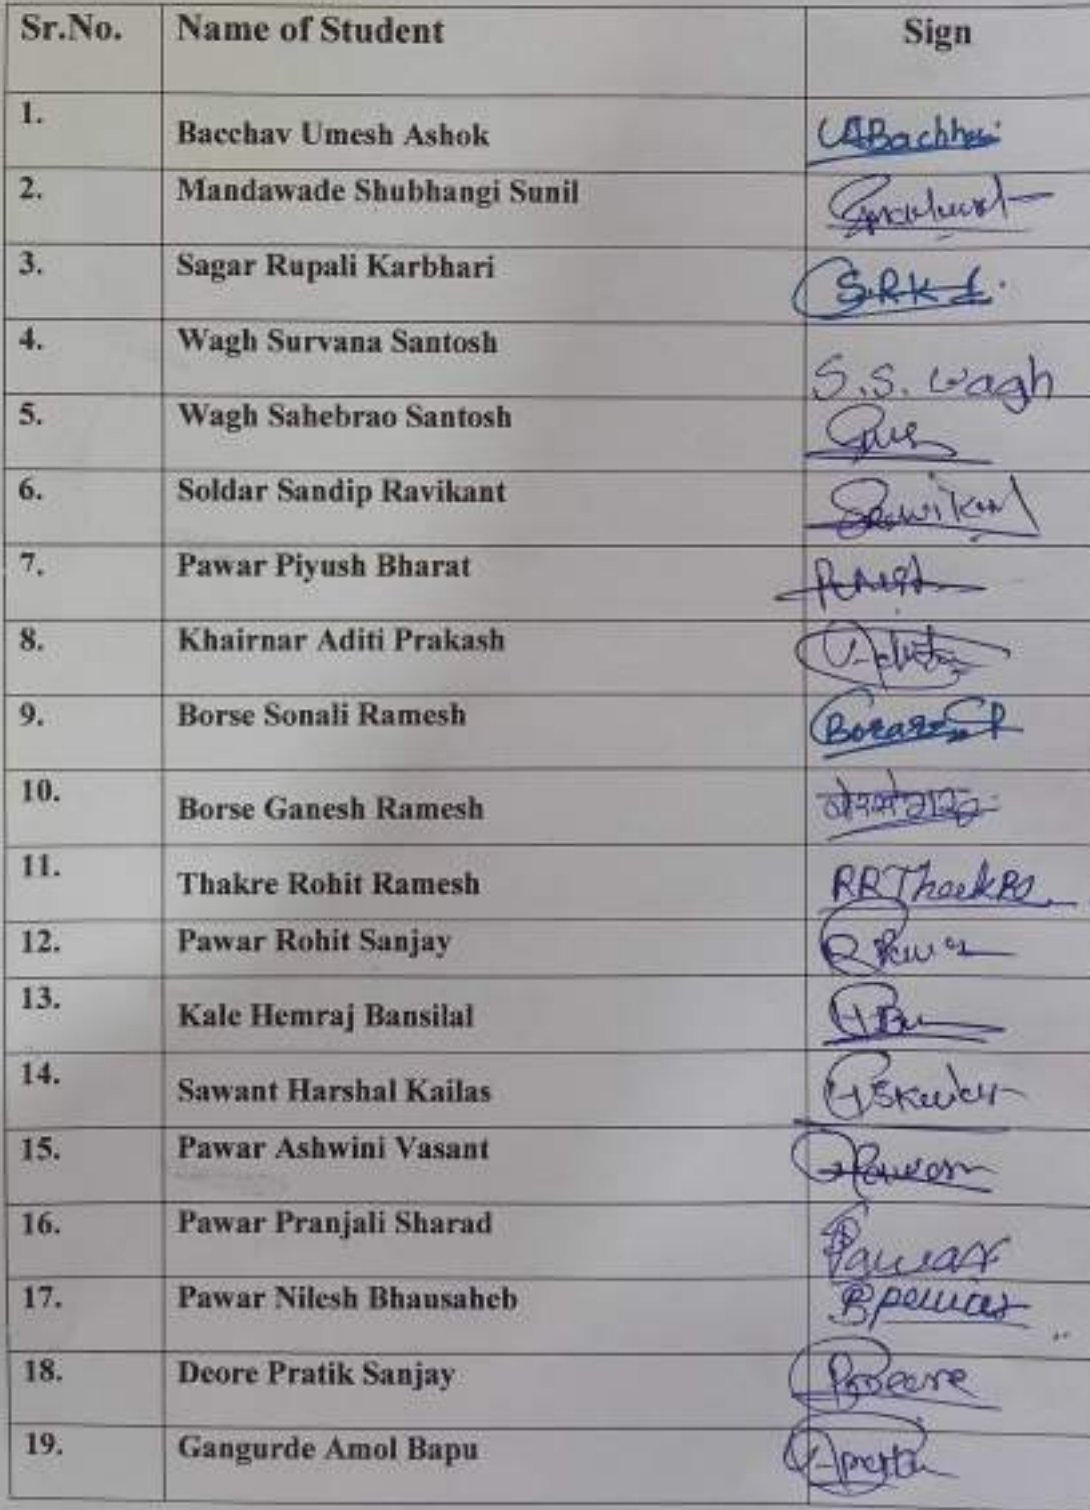 Sr.No. Name of Student Sign
1. Bacchav Umesh Ashok
2. Mandawade Shubhangi Sunil
3. Sagar Rupali Karbhari S.R.K
4. Wagh Survana Santosh S.S. Wagh
5. Wagh Sahebrao Santosh
6. Soldar Sandip Ravikant
7. Pawar Piyush Bharat
8. Khairnar Aditi Prakash
9. Borse Sonali Ramesh
10. Borse Ganesh Ramesh
11. Thakre Rohit Ramesh
12. Pawar Rohit Sanjay
13. Kale Hemraj Bansilal
14. Sawant Harshal Kailas
15. Pawar Ashwini Vasant
16. Pawar Pranjali Sharad Pawar
17. Pawar Nilesh Bhausaheb
18. Deore Pratik Sanjay
19. Gangurde Amol Bapu